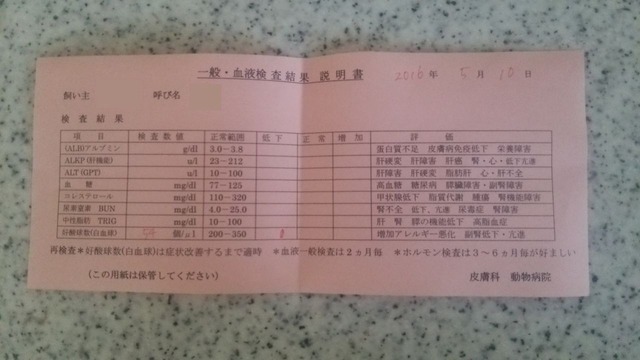 一般・血液検査結果 説明書 2016年 5月 10日
飼い主 呼び名
検査結果
項目 検査数値 正常範囲 低下 正常 増加 評価
(ALB)アルブミン g/dl 3.0－3.8 蛋白質不足 皮膚病免疫低下 栄養障害
ALKP(肝機能) u/l 23－212 肝硬変 肝障害 肝癌 腎・心・低下亢進
ALT(GPT) u/l 10－100 肝障害 肝硬変 脂肪肝 心・肝不全
血糖 mg/dl 77－125 高血糖 糖尿病 膵臓障害・副腎障害
コレステロール mg/dl 110－320 甲状腺低下 脂質代謝 腫瘍 腎機能障害
尿素窒素 BUN mg/dl 4.0－25.0 腎不全 低下、亢進 尿毒症 腎障害
中性脂肪 TRIG mg/dl 10－100 肝 腎 膵の機能低下 高脂血症
好酸球数(白血球) 54 個/μl 200－350 増加アレルギー悪化 副腎低下・亢進
再検査＊好酸球数(白血球)は症状改善するまで適時 ＊血液一般検査は2ヵ月毎 ＊ホルモン検査は3～6ヵ月毎が好ましい
(この用紙は保管してください) 皮膚科 動物病院